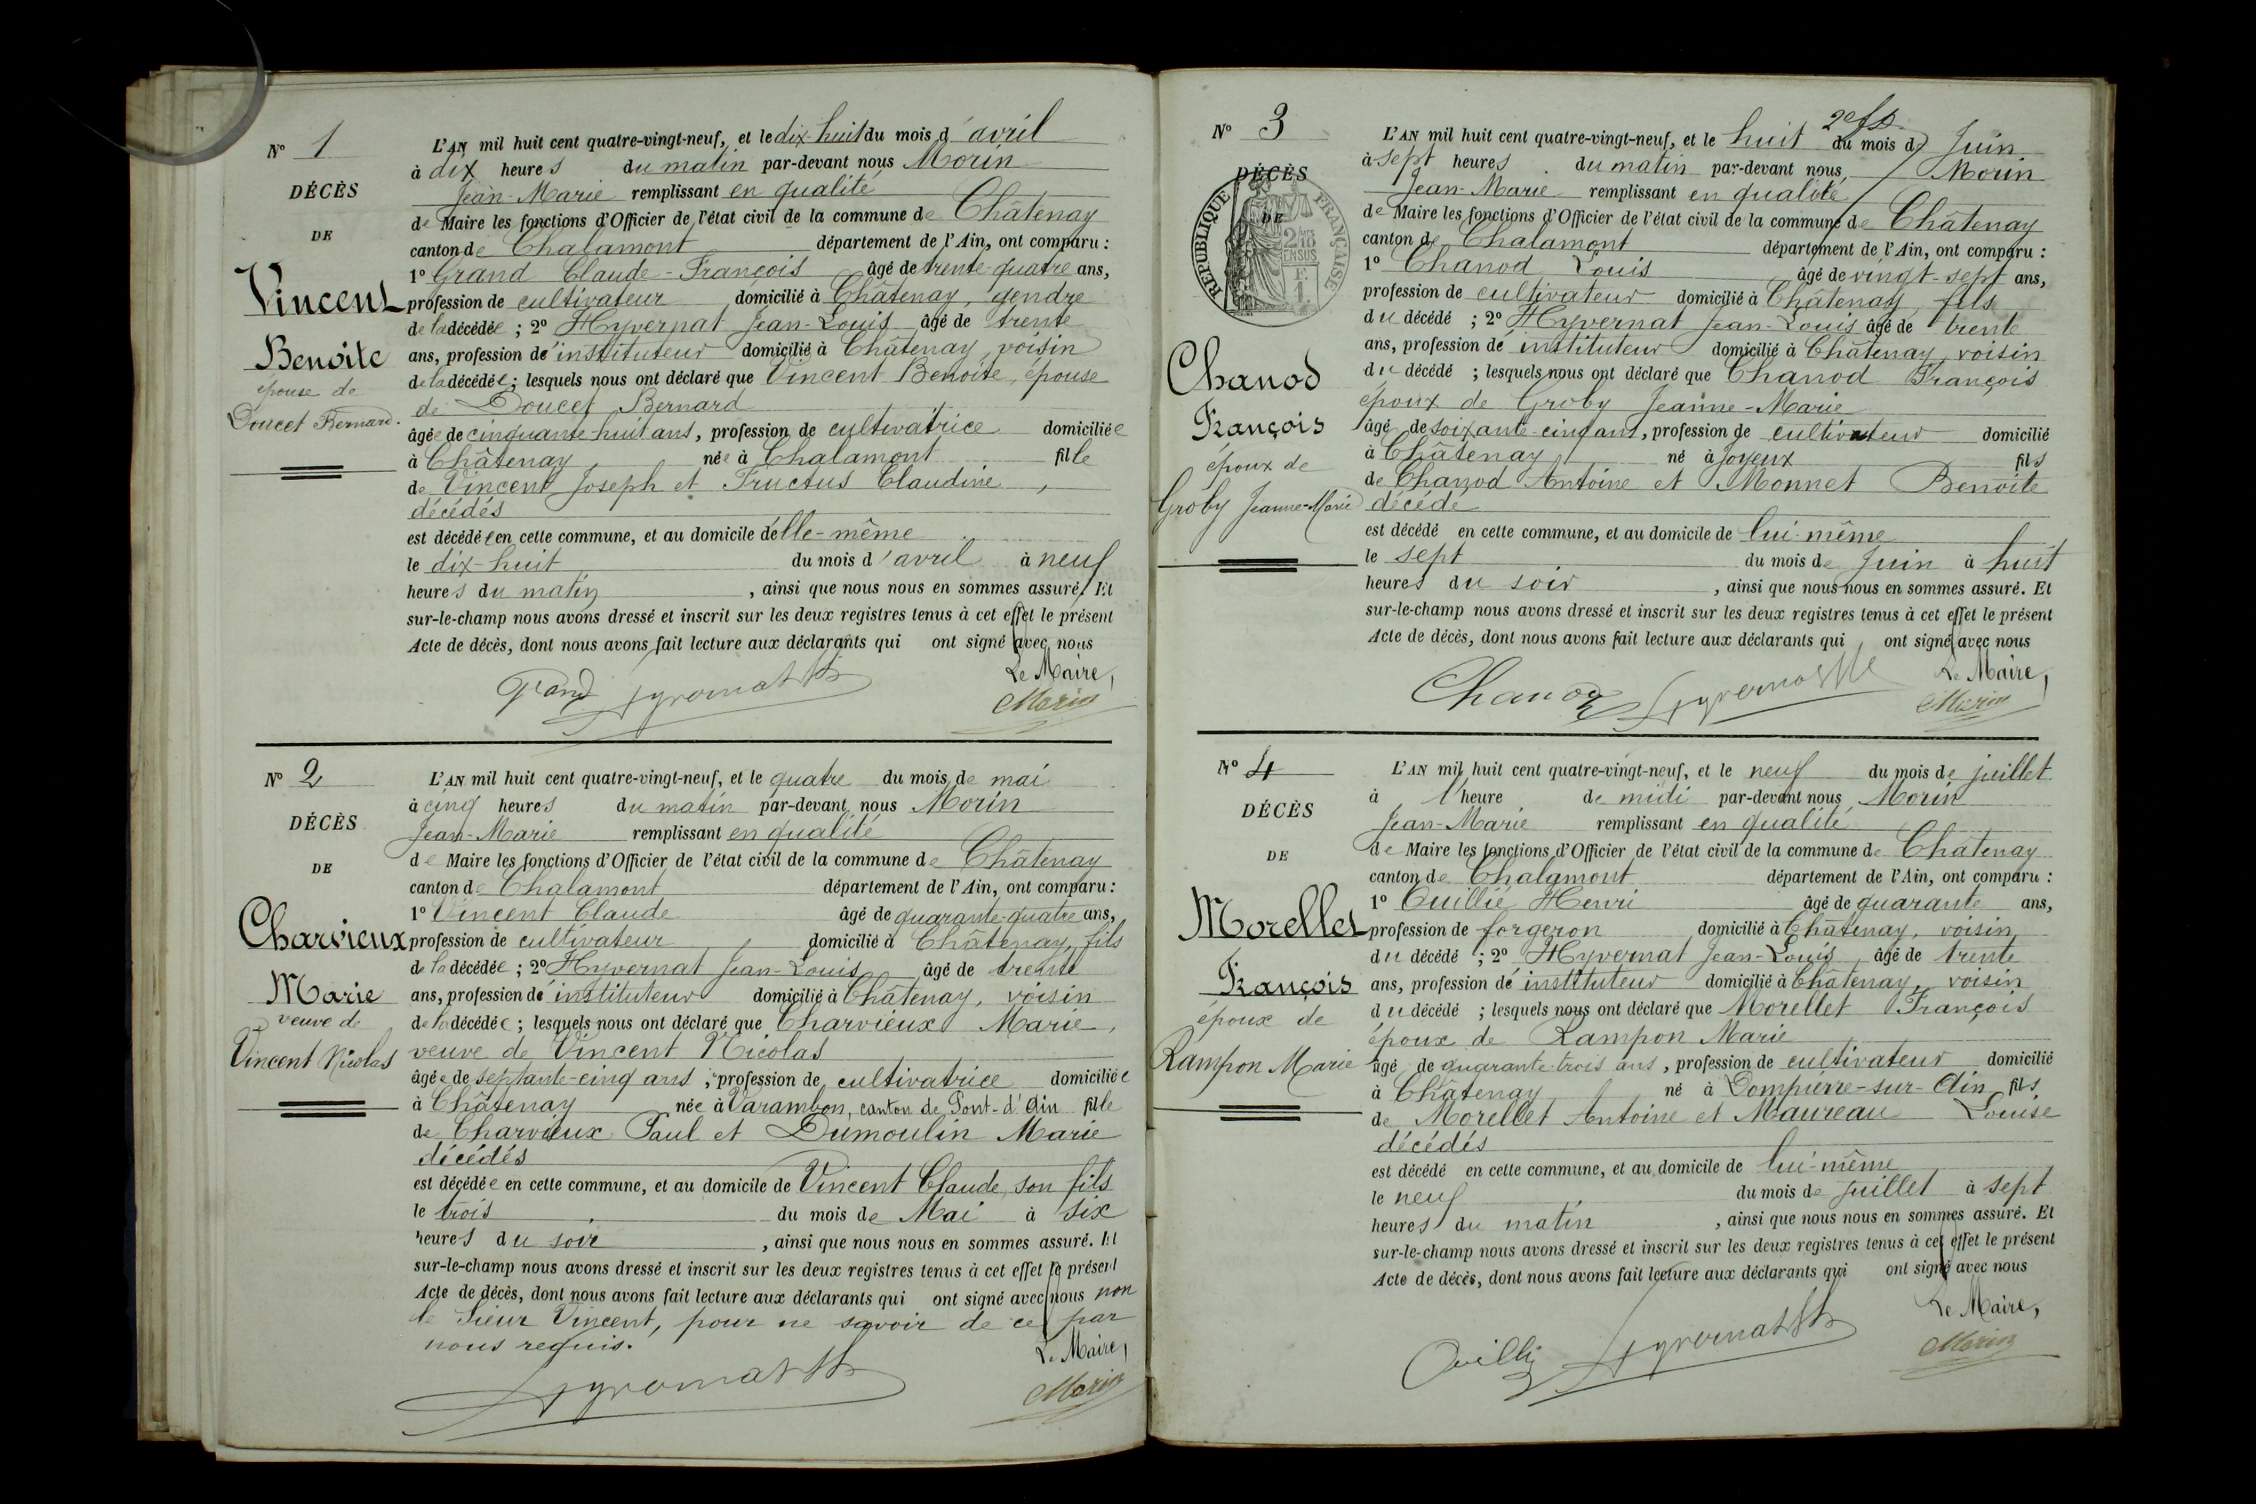 N° 1
DÉCÈS
DE
Vincent
Benoite
épouse de
Doucet Bernard.
L'AN mil huit cent quatre-vingt-neuf, et le dix-huit du mois d'avril
à dix heures du matin par-devant nous Morin
Jean-Marie remplissant en qualité
de Maire les fonctions d'Officier de l'état civil de la commune de Châtenay
canton de Chalamont département de l'Ain, ont comparu :
1° Grand Claude-François âgé de trente-quatre ans,
profession de cultivateur domicilié à Châtenay, gendre
de la décédée ; 2° Hyvernat Jean-Louis âgé de trente
ans, profession d'instituteur domicilié à Châtenay, voisin
de la décédée ; lesquels nous ont déclaré que Vincent Benoite, épouse
de Doucet Bernard
âgée de cinquante-huit ans, profession de cultivatrice domiciliée
à Châtenay née à Chalamont fille
de Vincent Joseph et Fructus Claudine,
décédés
est décédée en cette commune, et au domicile d'elle-même
le dix-huit du mois d'avril à neuf
heures du matin, ainsi que nous nous en sommes assuré. Et
sur-le-champ nous avons dressé et inscrit sur les deux registres tenus à cet effet le présent
Acte de décès, dont nous avons fait lecture aux déclarants qui ont signé avec nous
Le Maire,
Grand Hyvernat Morin
N° 2
DÉCÈS
DE
Charvieux
Marie
veuve de
Vincent Nicolas
L'AN mil huit cent quatre-vingt-neuf, et le quatre du mois de mai
à cinq heures du matin par-devant nous Morin
Jean-Marie remplissant en qualité
de Maire les fonctions d'Officier de l'état civil de la commune de Châtenay
canton de Chalamont département de l'Ain, ont comparu :
1° Vincent Claude âgé de quarante-quatre ans,
profession de cultivateur domicilié à Châtenay, fils
de la décédée ; 2° Hyvernat Jean-Louis âgé de trente
ans, profession d'instituteur domicilié à Châtenay, voisin
de la décédée ; lesquels nous ont déclaré que Charvieux Marie,
veuve de Vincent Nicolas
âgée de septante-cinq ans, profession de cultivatrice domiciliée
à Châtenay née à Varambon, canton de Pont-d'Ain fille
de Charvieux Paul et Dumoulin Marie
décédés
est décédée en cette commune, et au domicile de Vincent Claude, son fils
le trois du mois de Mai à six
heures du soir, ainsi que nous nous en sommes assuré. Et
sur-le-champ nous avons dressé et inscrit sur les deux registres tenus à cet effet le présent
Acte de décès, dont nous avons fait lecture aux déclarants qui ont signé avec nous non
le Sieur Vincent, pour ne savoir de ce par
nous requis.
Le Maire,
Hyvernat Morin
N° 3
DÉCÈS
DE
RÉPUBLIQUE FRANÇAISE
Chanod
François
époux de
Groby Jeanne-Marie
L'AN mil huit cent quatre-vingt-neuf, et le huit du mois de Juin
à sept heures du matin par-devant nous, Morin
Jean-Marie remplissant en qualité
de Maire les fonctions d'Officier de l'état civil de la commune de Châtenay
canton de Chalamont département de l'Ain, ont comparu :
1° Chanod Louis âgé de vingt-sept ans,
profession de cultivateur domicilié à Châtenay, fils
du décédé ; 2° Hyvernat Jean-Louis âgé de trente
ans, profession d'instituteur domicilié à Châtenay, voisin
du décédé ; lesquels nous ont déclaré que Chanod François
époux de Groby Jeanne-Marie
âgé de soixante-cinq ans, profession de cultivateur domicilié
à Châtenay né à Joyeux fils
de Chanod Antoine et Monnet Benoite
décédé
est décédé en cette commune, et au domicile de lui-même
le sept du mois de Juin à huit
heures du soir, ainsi que nous nous en sommes assuré. Et
sur-le-champ nous avons dressé et inscrit sur les deux registres tenus à cet effet le présent
Acte de décès, dont nous avons fait lecture aux déclarants qui ont signé avec nous
Le Maire,
Chanod Hyvernat Morin
N° 4
DÉCÈS
DE
Morellet
François
époux de
Rampon Marie
L'AN mil huit cent quatre-vingt-neuf, et le neuf du mois de juillet
à l'heure de midi par-devant nous Morin
Jean-Marie remplissant en qualité
de Maire les fonctions d'Officier de l'état civil de la commune de Châtenay
canton de Chalamont département de l'Ain, ont comparu :
1° Cuillié Henri âgé de quarante ans,
profession de forgeron domicilié à Châtenay, voisin
du décédé ; 2° Hyvernat Jean-Louis âgé de trente
ans, profession d'instituteur domicilié à Châtenay, voisin
du décédé ; lesquels nous ont déclaré que Morellet François
époux de Rampon Marie
âgé de quarante-trois ans, profession de cultivateur domicilié
à Châtenay né à Dompierre-sur-Ain fils
de Morellet Antoine et Maureau Louise
décédés
est décédé en cette commune, et au domicile de lui-même
le neuf du mois de juillet à sept
heures du matin, ainsi que nous nous en sommes assuré. Et
sur-le-champ nous avons dressé et inscrit sur les deux registres tenus à cet effet le présent
Acte de décès, dont nous avons fait lecture aux déclarants qui ont signé avec nous
Le Maire,
Hyvernat Morin